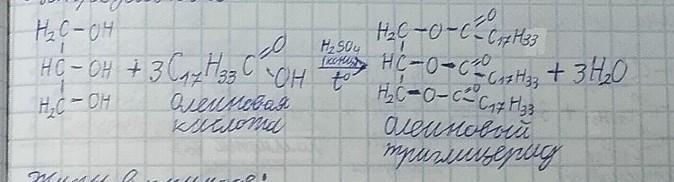 H₂C - OH
HC - OH + 3C₁₇H₃₃C=O-OH H₂SO₄ (конц) t° → H₂C - O - C=O C₁₇H₃₃
HC - O - C=O C₁₇H₃₃ + 3H₂O
H₂C - OH
H₂C - O - C=O C₁₇H₃₃
олеиновая
кислота
олеиновый
триглицерид